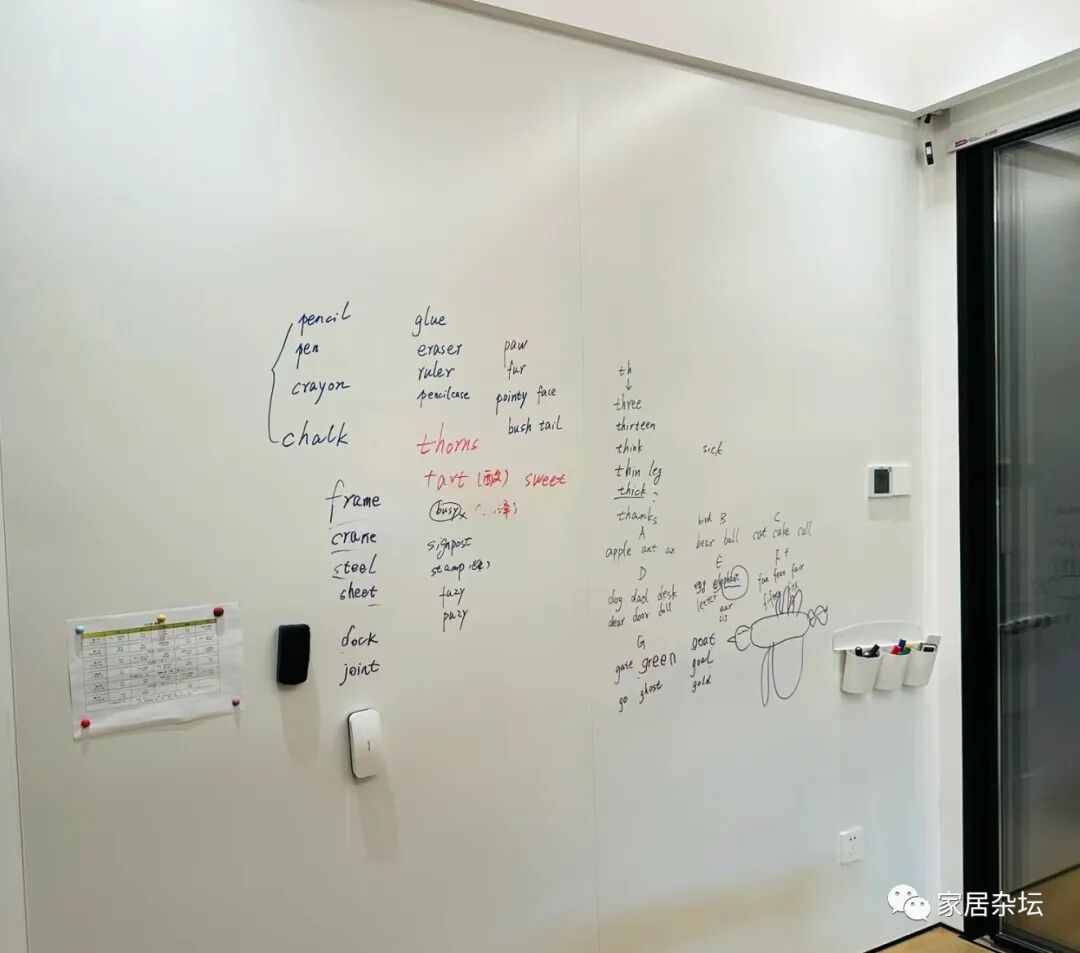 pencil
pen
crayon
chalk
glue
eraser
ruler
pencilcase
paw
fur
pointy face
bush tail
thorns
tart sweet
frame
crane
steel
sheet
dock
joint
busy
signpost
stamp
fuzy
th
three
thirteen
think
thin leg
thick
thanks
sick
A
apple ant ax
bird B
bear ball
C
cat cake call
D
dog dad desk
dear door doll
E
egg elephant
letter ear
F
fan fear
G
gate green
go ghost
goat
goal
gold
家居杂坛